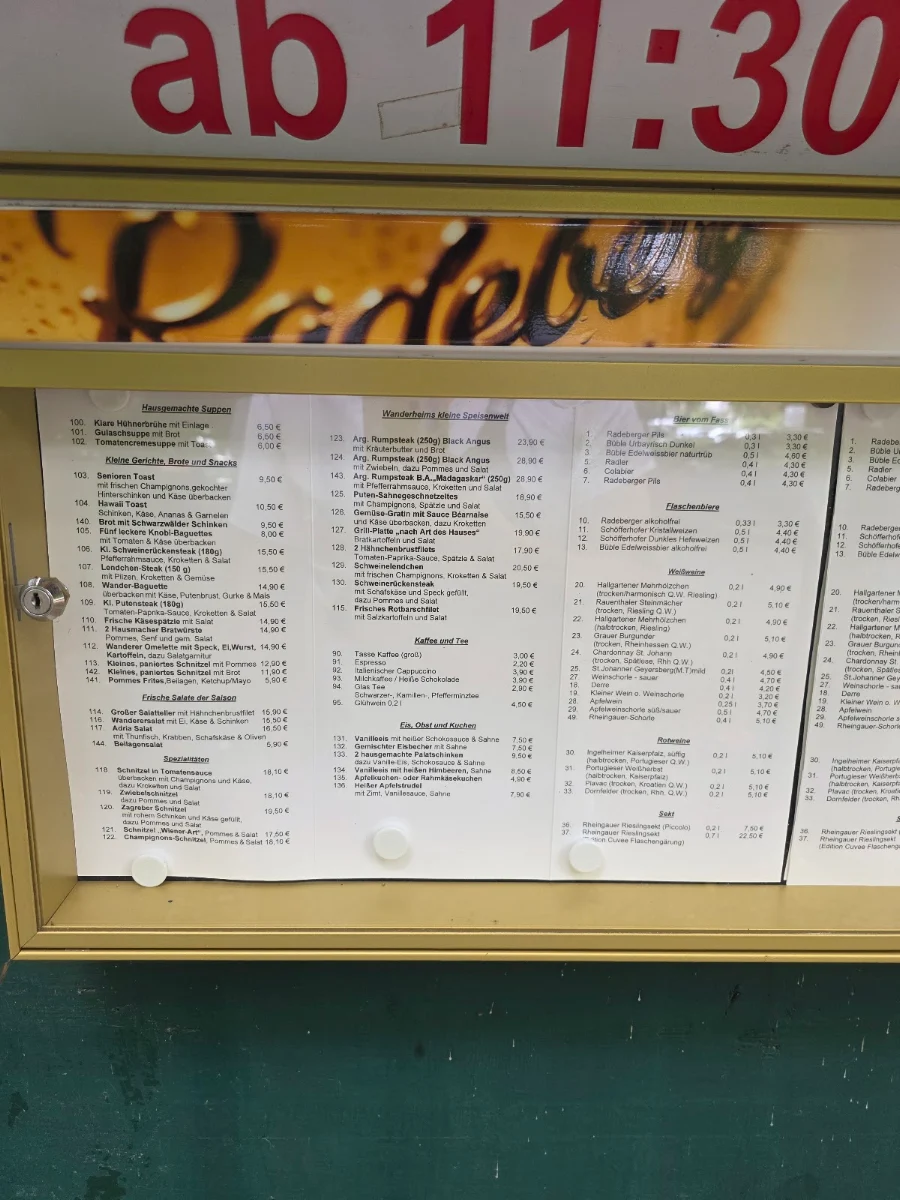 ab 11:30
Radeber
Hausgemachte Suppen
100. Klare Hühnerbrühe mit Einlage 6,50 €
101. Gulaschsuppe mit Brot 6,60 €
102. Tomatencremesuppe mit Toast 6,00 €
Kleine Gerichte, Brote und Snacks
103. Senioren Toast 9,50 €
mit frischen Champignons,gekochter
Hinterschinken und Käse überbacken
104. Hawaii Toast 10,50 €
Schinken, Käse, Ananas & Garnelen
140. Brot mit Schwarzwälder Schinken 9,50 €
105. Fünf leckere Knobi-Baguettes 8,00 €
mit Tomaten & Käse überbacken
106. Kl. Schweinerückensteak (180g) 15,50 €
Pfefferrahmsauce, Kroketten & Salat
107. Lendchen-Steak (150 g) 15,50 €
mit Pilzen, Kroketten & Gemüse
108. Wander-Baguette 14,90 €
überbacken mit Käse, Putenbrust, Gurke & Mais
109. Kl. Putensteak (180g) 15,50 €
Tomaten-Paprika-Sauce, Kroketten & Salat
110. Frische Käsespätzle mit Salat 14,90 €
111. 2 Hausmacher Bratwürste 14,90 €
Pommes, Senf und gem. Salat
112. Wanderer Omelette mit Speck, Ei,Wurst, 14,90 €
Kartoffeln, dazu Salatgarnitur
113. Kleines, paniertes Schnitzel mit Pommes 12,90 €
142. Kleines, paniertes Schnitzel mit Brot 11,90 €
141. Pommes Frites,Beilagen, Ketchup/Mayo 5,90 €
Frische Salate der Saison
114. Großer Salatteller mit Hähnchenbrustfilet 15,90 €
116. Wanderersalat mit Ei, Käse & Schinken 15,50 €
117 Adria Salat 16,50 €
mit Thunfisch, Krabben, Schafskäse & Oliven
144. Beilagensalat 5,90 €
Spezialitäten
118. Schnitzel in Tomatensauce 18,10 €
überbacken mit Champignons und Käse,
dazu Kroketten und Salat
119. Zwiebelschnitzel 18,10 €
dazu Pommes und Salat
120. Zagreber Schnitzel 19,50 €
mit rohem Schinken und Käse gefüllt,
dazu Pommes und Salat
121. Schnitzel „Wiener-Art", Pommes & Salat 17,50 €
122. Champignons-Schnitzel, Pommes & Salat 18,10 €
Wanderheims kleine Speisenwelt
123. Arg. Rumpsteak (250g) Black Angus 23,90 €
mit Kräuterbutter und Brot
124. Arg. Rumpsteak (250g) Black Angus 28,90 €
mit Zwiebeln, dazu Pommes und Salat
143. Arg. Rumpsteak B.A.„Madagaskar" (250g) 28,90 €
mit Pfefferrahmsauce, Kroketten und Salat
125. Puten-Sahnegeschnetzeltes 18,90 €
mit Champignons, Spätzle und Salat
126. Gemüse-Gratin mit Sauce Béarnaise 15,50 €
und Käse überbacken, dazu Kroketten
127. Grill-Platte „nach Art des Hauses" 19,90 €
Bratkartoffeln und Salat
128. 2 Hähnchenbrustfilets 17,90 €
Tomaten-Paprika-Sauce, Spätzle & Salat
129. Schweinelendchen 20,50 €
mit frischen Champignons, Kroketten & Salat
130. Schweinerückensteak 19,50 €
mit Schafskäse und Speck gefüllt,
dazu Pommes und Salat
115. Frisches Rotbarschfilet 19,50 €
mit Salzkartoffeln und Salat
Kaffee und Tee
90. Tasse Kaffee (groß) 3,00 €
91. Espresso 2,20 €
92. Italienischer Cappuccino 3,90 €
93. Milchkaffee / Heiße Schokolade 3,90 €
94. Glas Tee 2,90 €
Schwarzer-, Kamillen-, Pfefferminztee
95. Glühwein 0,2 l 4,50 €
Eis, Obst und Kuchen
131. Vanilleeis mit heißer Schokosauce & Sahne 7,50 €
132. Gemischter Eisbecher mit Sahne 7,50 €
133. 2 hausgemachte Palatschinken 9,50 €
dazu Vanille-Eis, Schokosauce & Sahne
134 Vanilleeis mit heißen Himbeeren, Sahne 8,50 €
135. Apfelkuchen- oder Rahmkäsekuchen 4,90 €
136. Heißer Apfelstrudel
mit Zimt, Vanillesauce, Sahne 7,90 €
Bier vom Fass
1. Radeberger Pils 0,3 l 3,30 €
2. Büble Urbayrisch Dunkel 0,3 l 3,30 €
3. Büble Edelweissbier naturtrüb 0,5 l 4,80 €
5. Radler 0,4 l 4,30 €
6. Colabier 0,4 l 4,30 €
7. Radeberger Pils 0,4 l 4,30 €
Flaschenbiere
10. Radeberger alkoholfrei 0,33 l 3,30 €
11. Schöfferhofer Kristallweizen 0,5 l 4,40 €
12. Schöfferhofer Dunkles Hefeweizen 0,5 l 4,40 €
13. Büble Edelweissbier alkoholfrei 0,5 l 4,40 €
Weißweine
20. Hallgartener Mehrhölzchen 0,2 l 4,90 €
(trocken/harmonisch Q.W. Riesling)
21. Rauenthaler Steinmächer 0,2 l 5,10 €
(trocken, Riesling Q.W.)
22. Hallgartener Mehrhölzchen 0,2 l 4,90 €
(halbtrocken, Riesling)
23. Grauer Burgunder 0,2 l 5,10 €
(trocken, Rheinhessen Q.W.)
24. Chardonnay St. Johann 0,2 l 4,90 €
(trocken, Spätlese, Rhh Q.W.)
25. St.Johanner Geyersberg(M.T)mild 0,2l 4,50 €
27 Weinschorle - sauer 0,4 l 4,70 €
18. Derre 0,4 l 4,20 €
19. Kleiner Wein o. Weinschorle 0,2 l 3,20 €
28. Apfelwein 0,25 l 3,70 €
29. Apfelweinschorle süß/sauer 0,5 l 4,70 €
49. Rheingau-Schorle 0,4 l 5,10 €
Rotweine
30. Ingelheimer Kaiserpfalz, süffig 0,2 l 5,10 €
(halbtrocken, Portugieser Q.W.)
31. Portugieser Weißherbst 0,2 l 5,10 €
(halbtrocken, Kaiserpfalz)
32 Plavac (trocken, Kroatien Q.W.) 0,2 l 5,10 €
33 Dornfelder (trocken, Rhh. Q.W.) 0,2 l 5,10 €
Sekt
36. Rheingauer Rieslingsekt (Piccolo) 0,2 l 7,50 €
37. Rheingauer Rieslingsekt 0,7 l 22,50 €
Edition Cuvee Flaschengärung)
1. Radebe
2. Büble U
3. Büble E
5. Radler
6. Colabier
7. Radeberg
10. Radeberger
11. Schöfferho
12. Schöfferhof
13. Büble Edelw
20. Hallgartener M
(trocken/harm
21. Rauenthaler S
(trocken, Ries
22. Hallgartener M
(halbtrocken, R
23. Grauer Burgun
(trocken, Rhein
24. Chardonnay St.
(trocken, Spätles
25. St.Johanner Gey
27 Weinschorle - sa
18. Derre
19. Kleiner Wein o. W
28. Apfelwein
29. Apfelweinschorle s
49. Rheingau-Schorle
30. Ingelheimer Kaiserpf
(halbtrocken, Portugie
31. Portugieser Weißherb
(halbtrocken, Kaiserpfalz
32. Plavac (trocken, Kroatie
33. Dornfelder (trocken, Rh
36. Rheingauer Rieslingsekt (
37. Rheingauer Rieslingsekt
(Edition Cuvee Flascheng